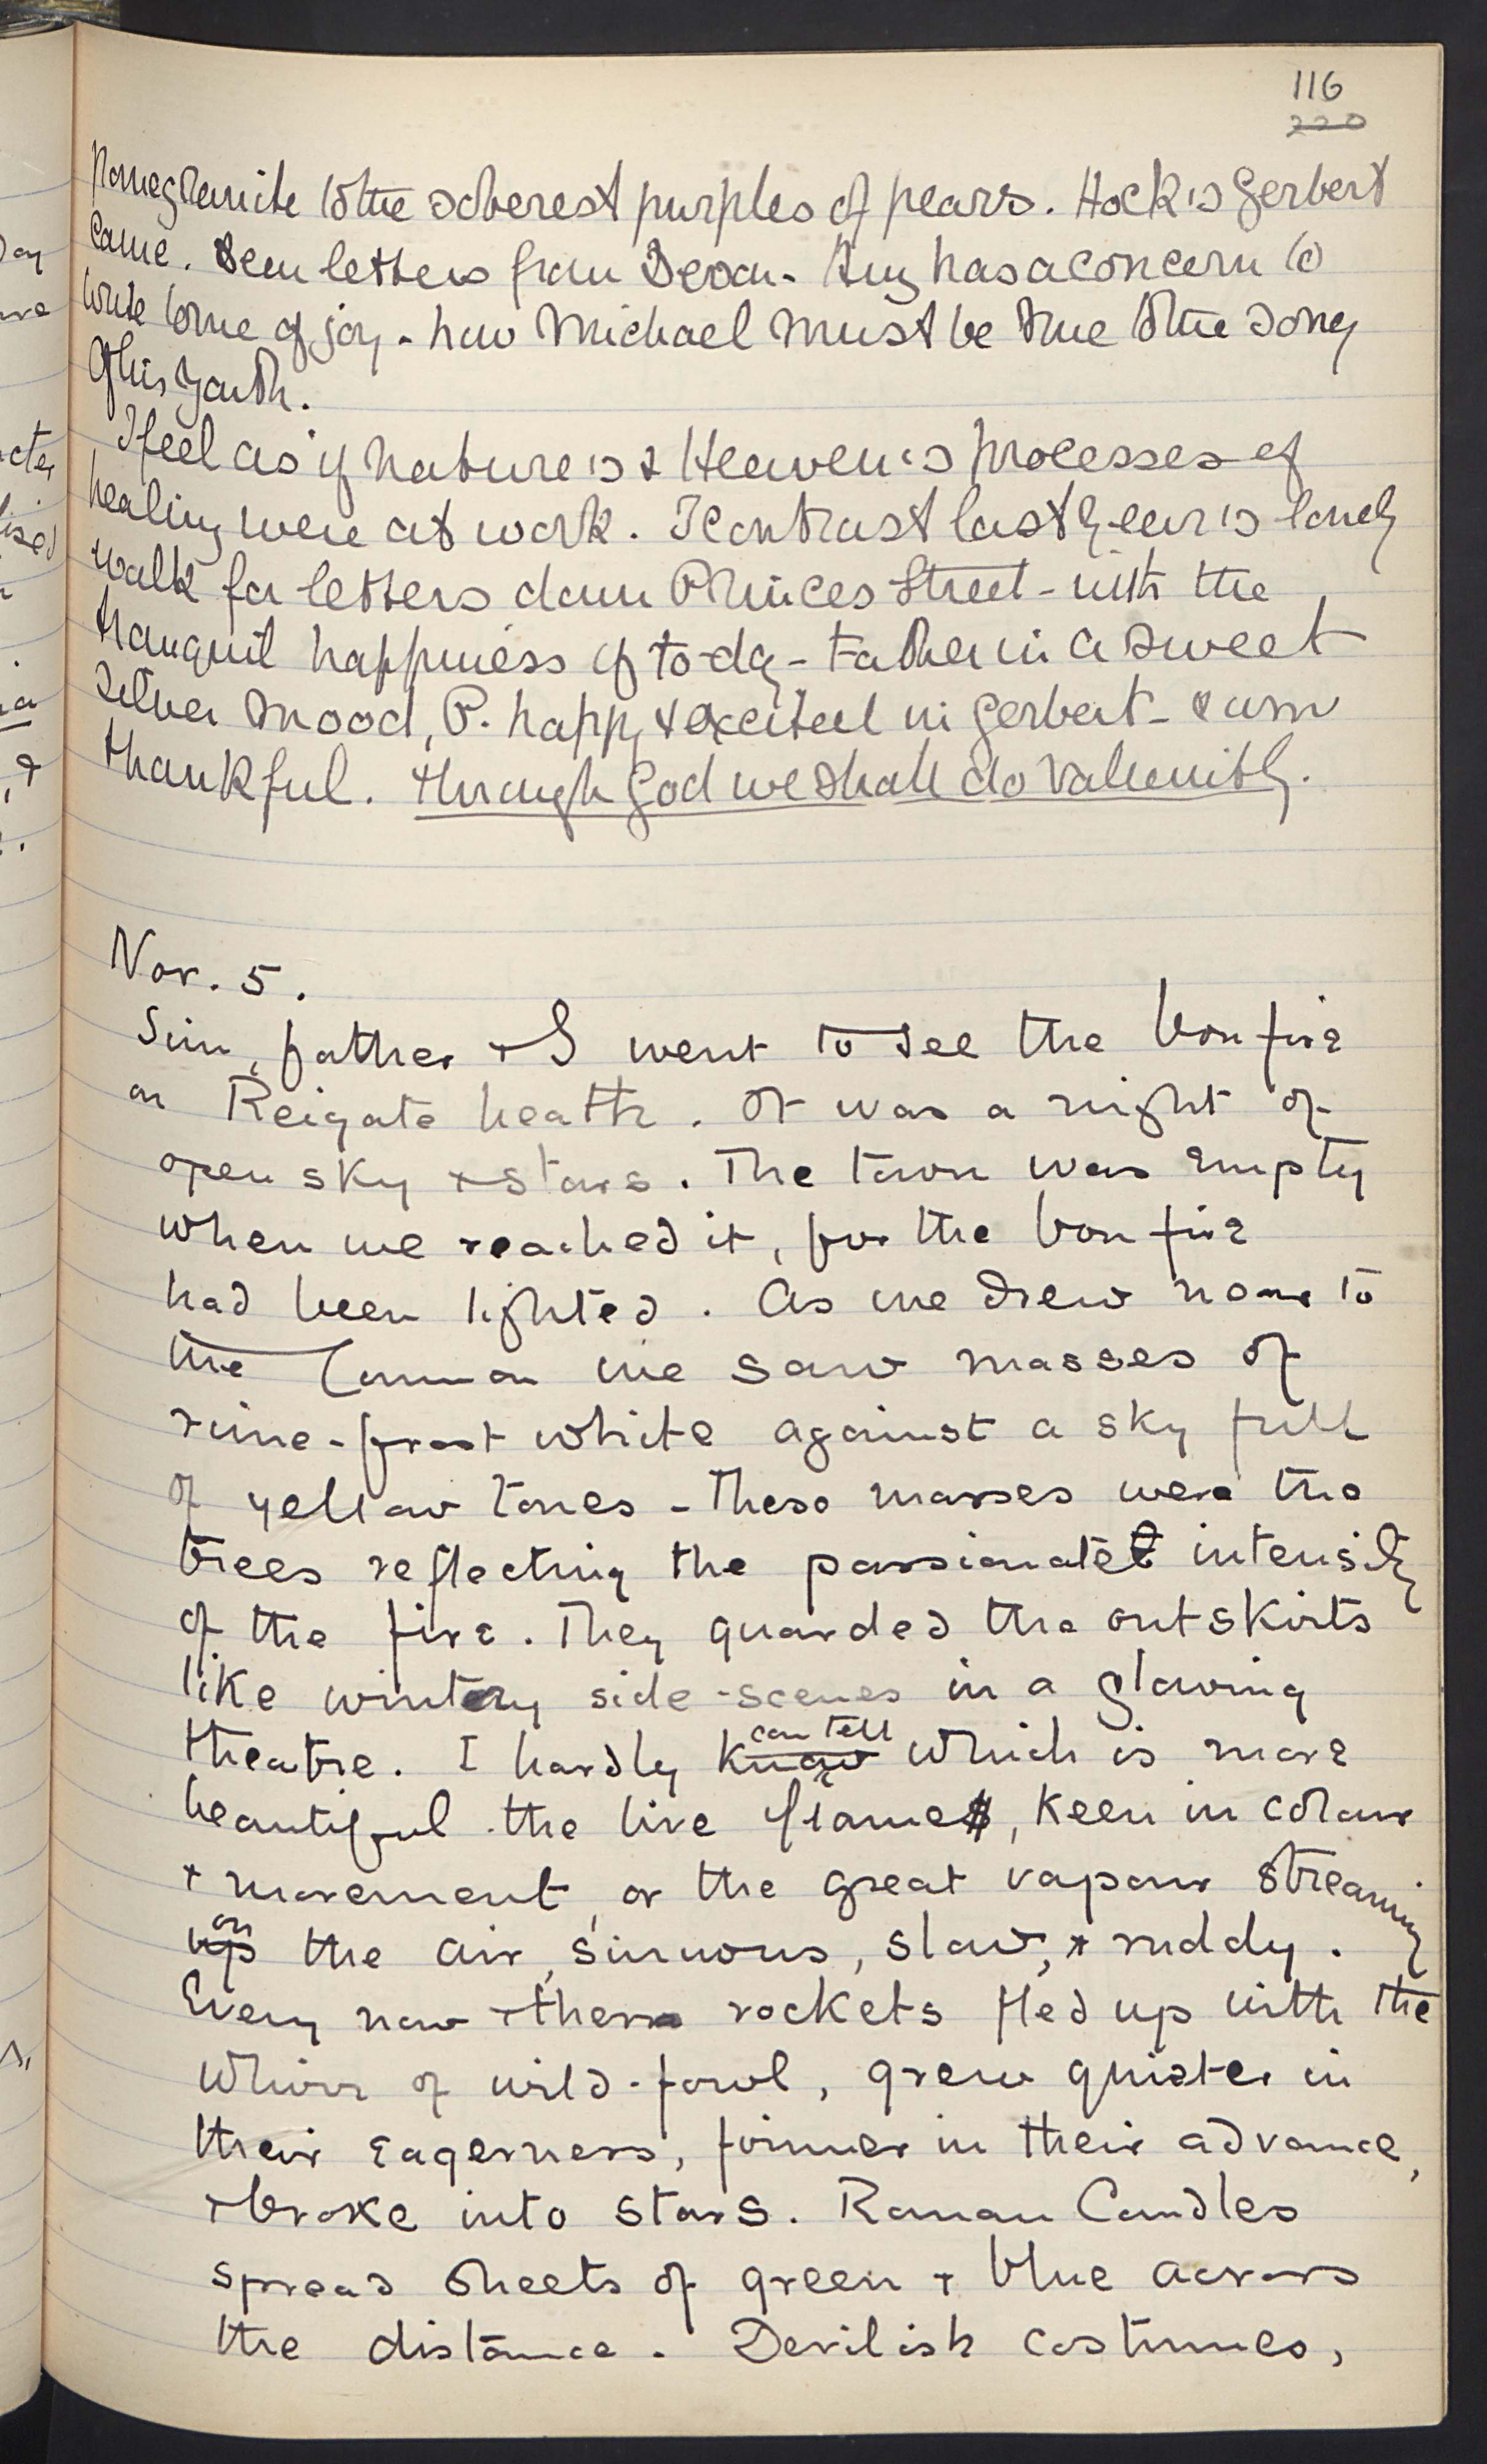 116
220
Pomegranite to the soberest purples of pears. Hock's Gerbert
came. Seen letters from Devon. Amy has a concern to
write some of joy - how Michael must be true to the song
of his youth.
I feel as if nature's & Heaven's processes of
healing were at work. I contrast last year's lonely
walk for letters down Princes Street - with the
tranquil happiness of to-day - father in a sweet
silver mood, P. happy & excited in Gerbert - & am
thankful. through God we shall do valiently.
Nov. 5.
Sim, father & I went to see the bonfire
on Reigate heath. It was a night of
open sky & stars. The town was empty
when we reached it, for the bonfire
had been lighted. As we drew near to
the Common we saw masses of
rime-frost white against a sky full
of yellow tones - these masses were the
trees reflecting the passionate intensity
of the fire. They guarded the outskirts
like wintery side-scenes in a glowing
can tell
theatre. I hardly know which is more
beautiful the live flame, keen in colour
& movement, or the great vapour streaming
on
up the air, sinuous, slow, & ruddy.
Every now & then rockets fled up with the
whirr of wild-fowl, grew quieter in
their eagerness, former in their advance,
& broke into stars. Roman Candles
spread sheets of green & blue across
the distance. Devilish costumes,